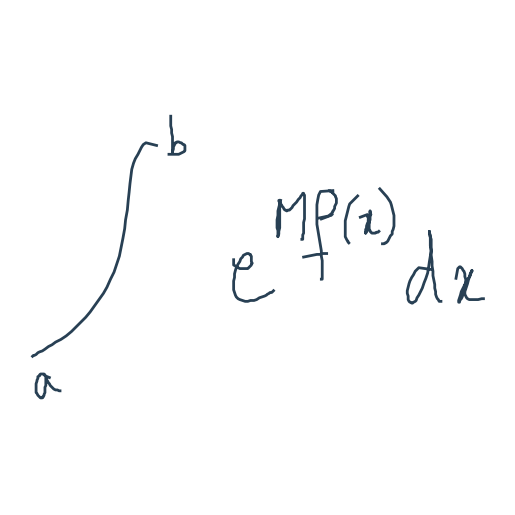 \int_{a}^{b} e^{Mf(x)} dx